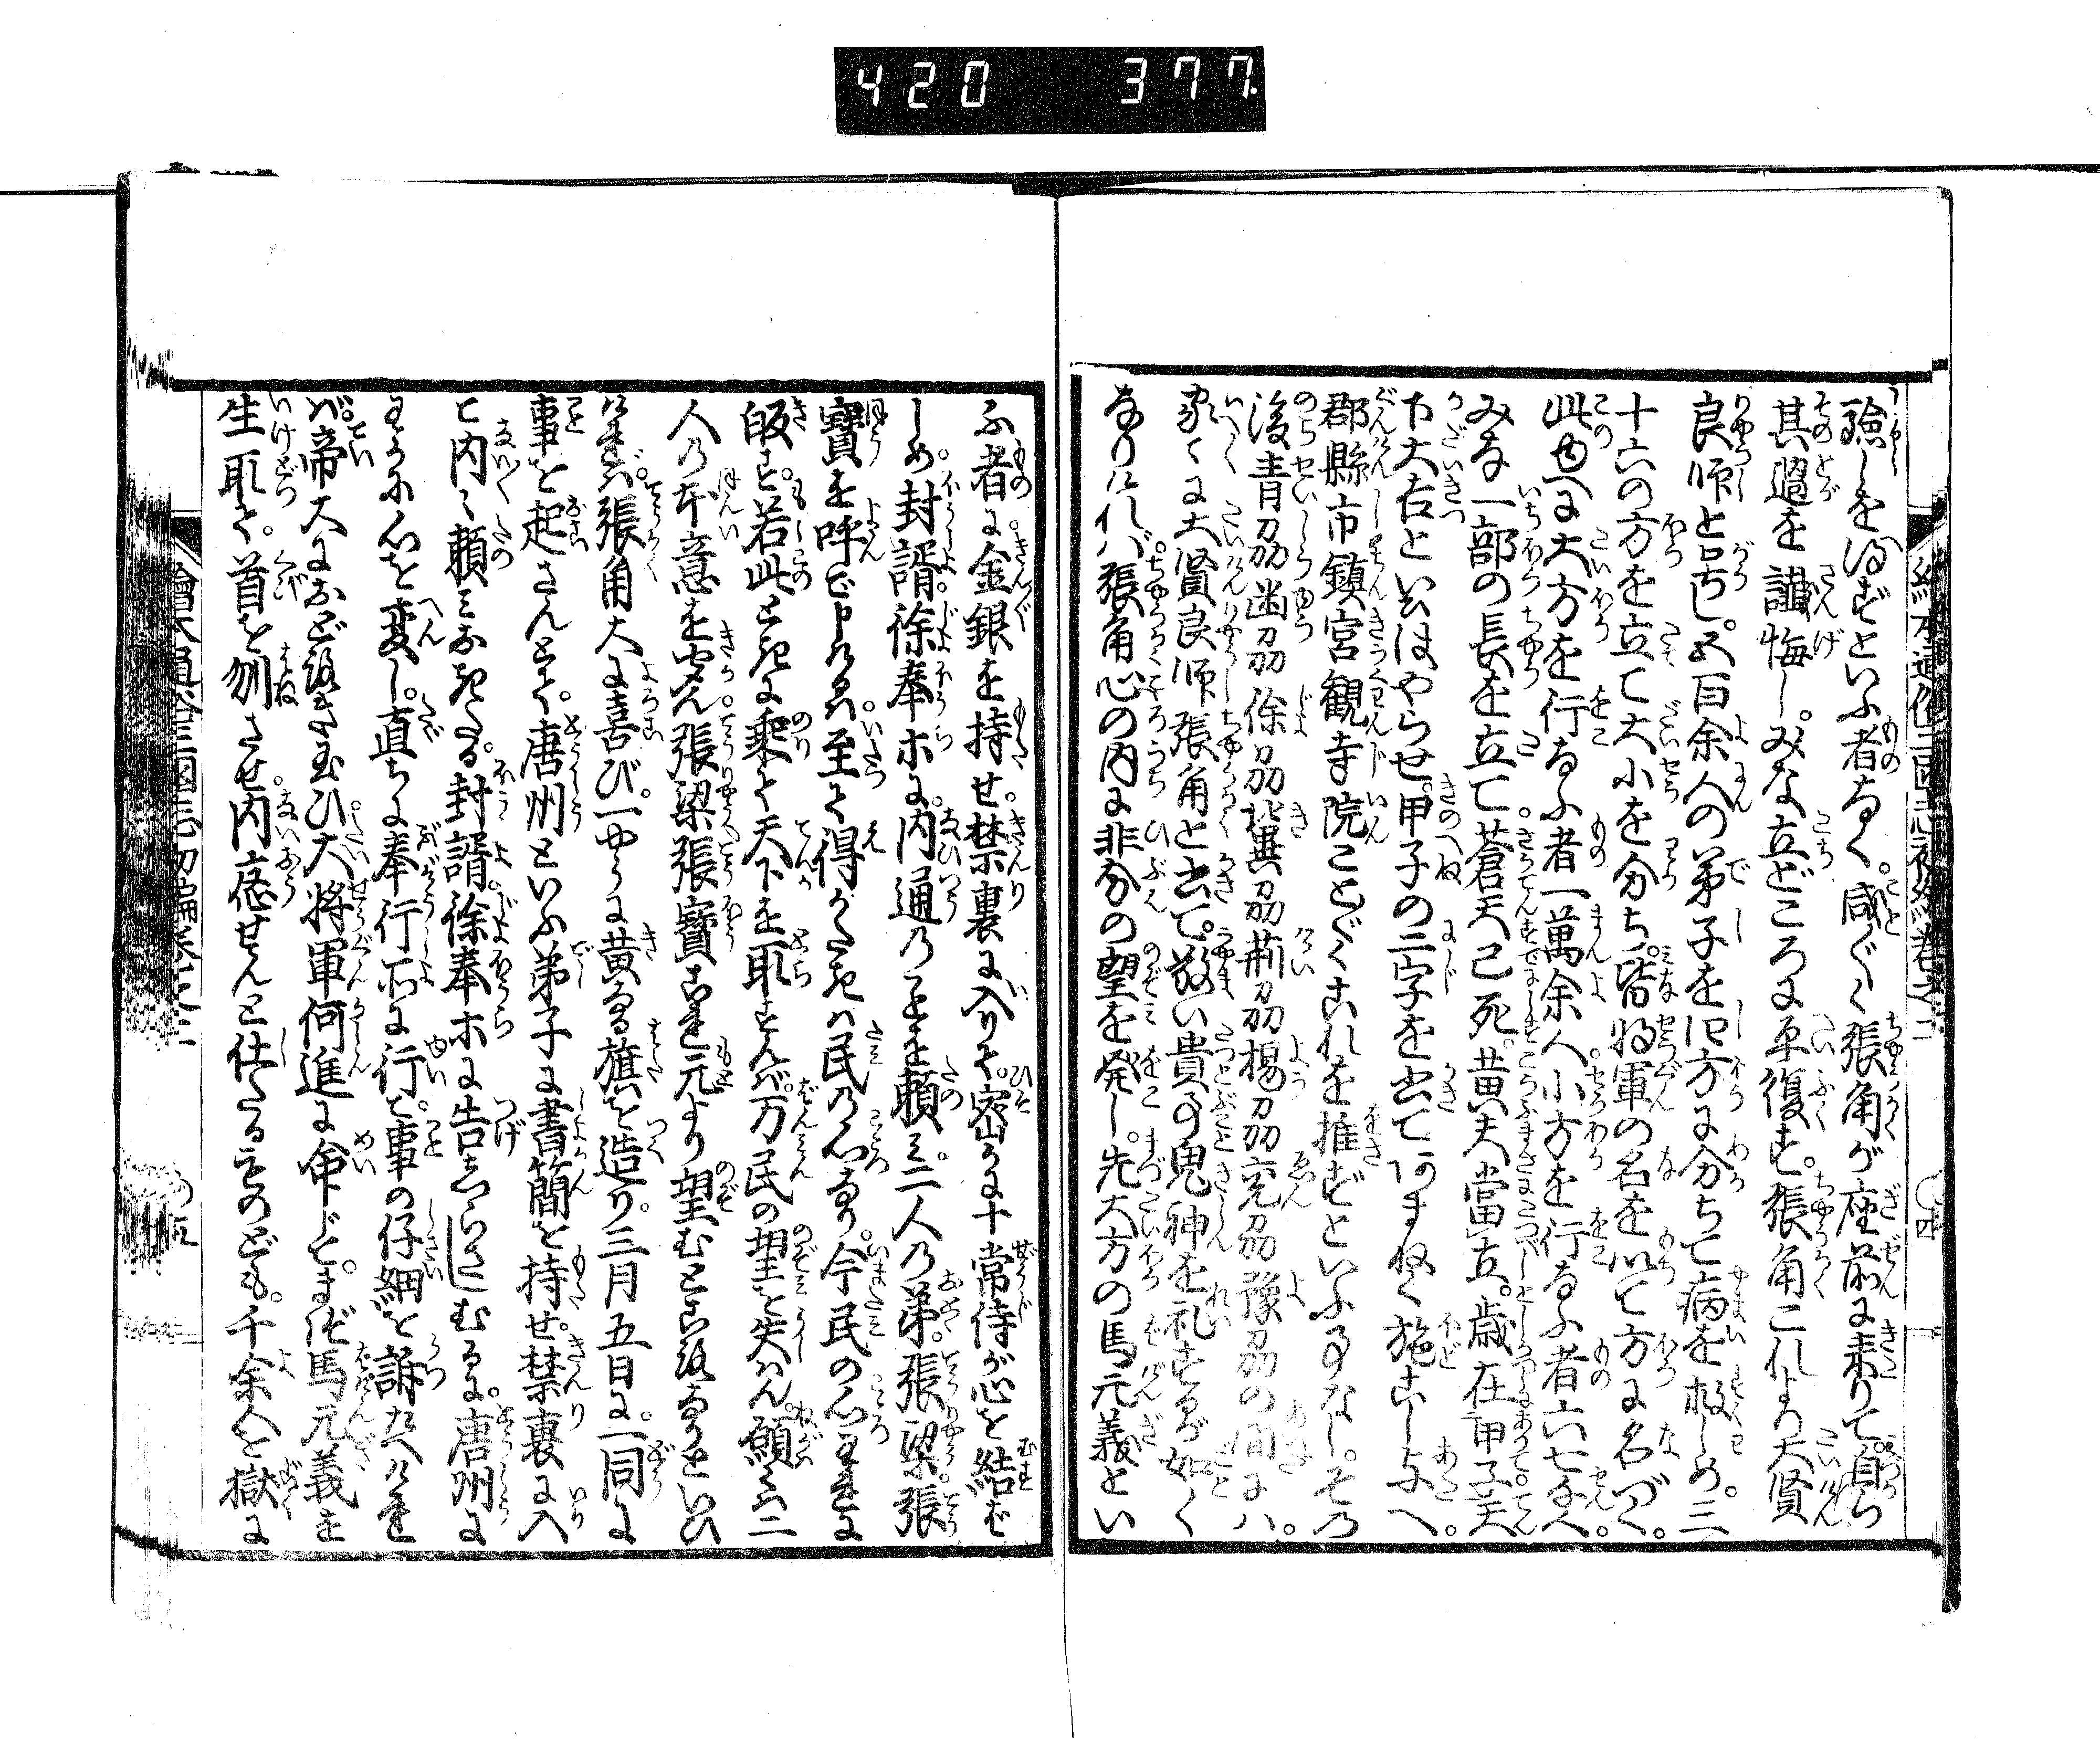 420 377
驗しを得ずといふ者なく。咸ぐく張角が座前に来りて。自ら
其過を讖悔し。みな立どころに平復す。張角これより大賢
良師と号し。五百余人の弟子を四方に分ちて病を救しめ。三
十六の方を立て大小を分ち。皆将軍の名を以て方に名づく。
此ゆへに大方を行なふ者一萬余人。小方を行なふ者六七千人。
みな一部の長を立て。蒼天已死。黄夫當立。歳在甲子天
下大吉といはやらせ。甲子の二字を書てあまねく施こし与へ。
郡縣市鎮宮観寺院ことごくこれを推ずといふ事なし。その
後青州幽州徐州冀州荊州楊州兗州豫州の間には。
家〻に大賢良師張角と書て。敬い貴事鬼神を礼するが如く
なりければ。張角心の内に非分の望を発し。先大方の馬元義とい
ふ者に金銀を持せ。禁裏に入りて。密かに十常侍が心を結ば
しめ。封諝。徐奉ホに。内通のことを頼み。二人の弟。張梁。張
寶を呼で申けるは。至て得がたきは民の心なり。今民の心われに
皈す。若此ときに乗て天下を取ずんば。万民の望を失はん。願くは二
人の本意を聞ん。張梁張寶これ元より望むところなりといひ
ければ。張角大に喜び。一やうに黄なる旗を造り。三月五日に。一同に
事を起さんとて。唐州といふ弟子に書簡を持せ。禁裏に入
て内〻頼みおきたる。封諝徐奉ホに告しらさしむるに。唐州に
わかに心を変し。直ちに奉行所に行て。事の仔細を訴たへければ
ば。帝大におどろき玉ひ。大将軍何進に命じて。まづ馬元義を
生取て。首を刎させ。内應せんと仕たるものども。千余人を獄に